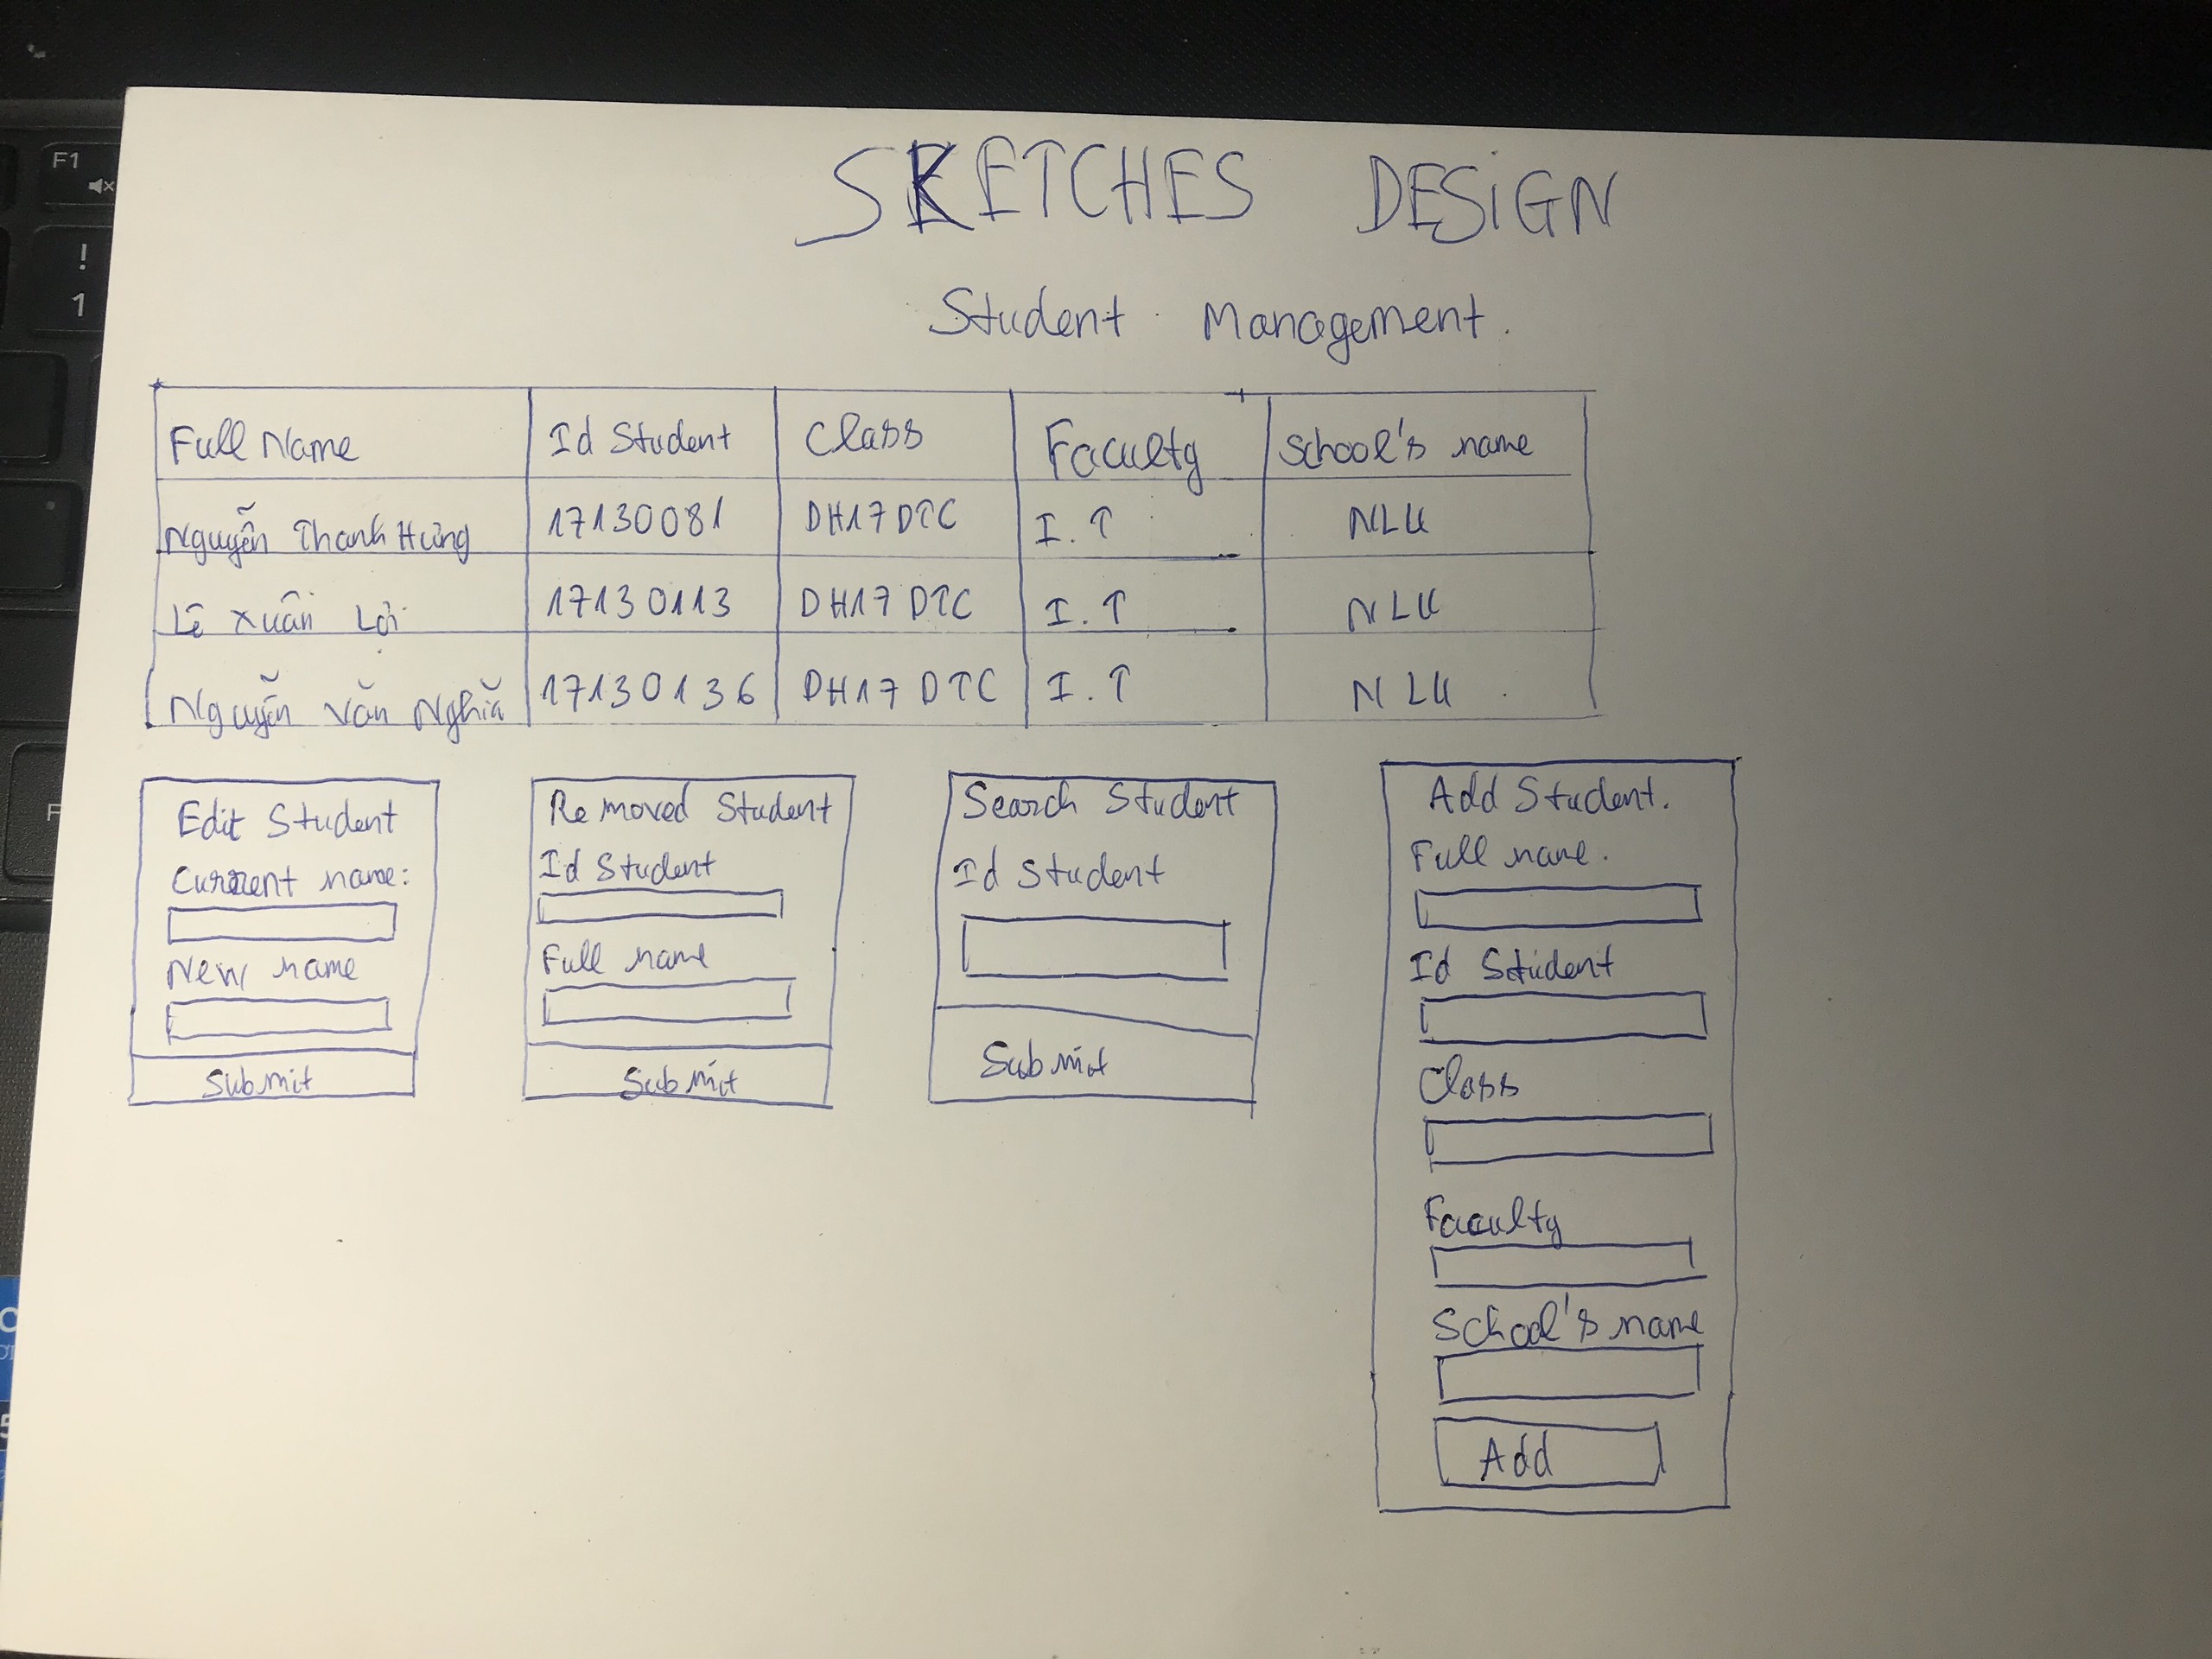 SKETCHES DESIGN
Student Management.
Full Name Id Student Class Faculty School's name
Nguyễn Thanh Hưng 17130081 DH17DTC I.T NLU
Lê Xuân Lợi 17130113 DH17DTC I.T NLU
Nguyễn Văn Nghĩa 17130136 DH17DTC I.T NLU
Edit Student
Current name:
New name
Submit
Removed Student
Id Student
Full name
Submit
Search Student
Id Student
Submit
Add Student.
Full name.
Id Student
Class
Faculty
School's name
Add
F1
!
1